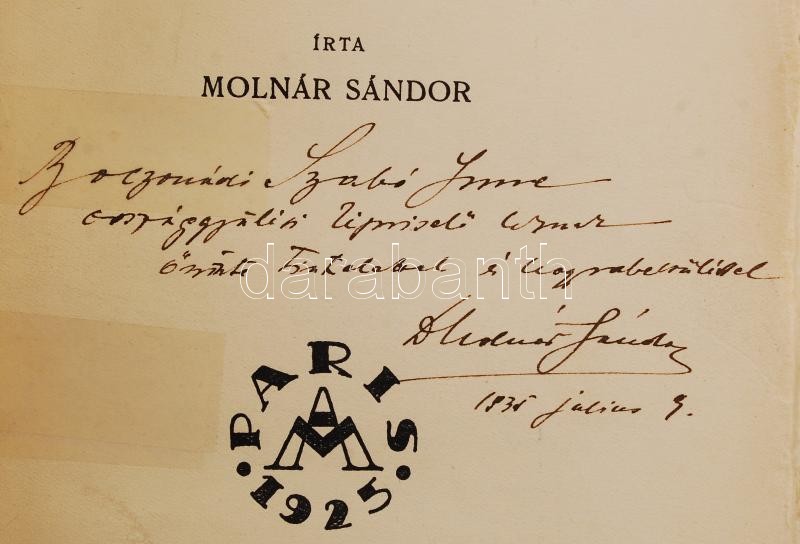 ÍRTA
MOLNÁR SÁNDOR
Boczonádi Szabó Imre
országgyűlési képviselő úrnak
őszinte tisztelettel és nagyrabecsüléssel
Molnár Sándor
1935 július 9.
PARIS
1925
AM
darabanth